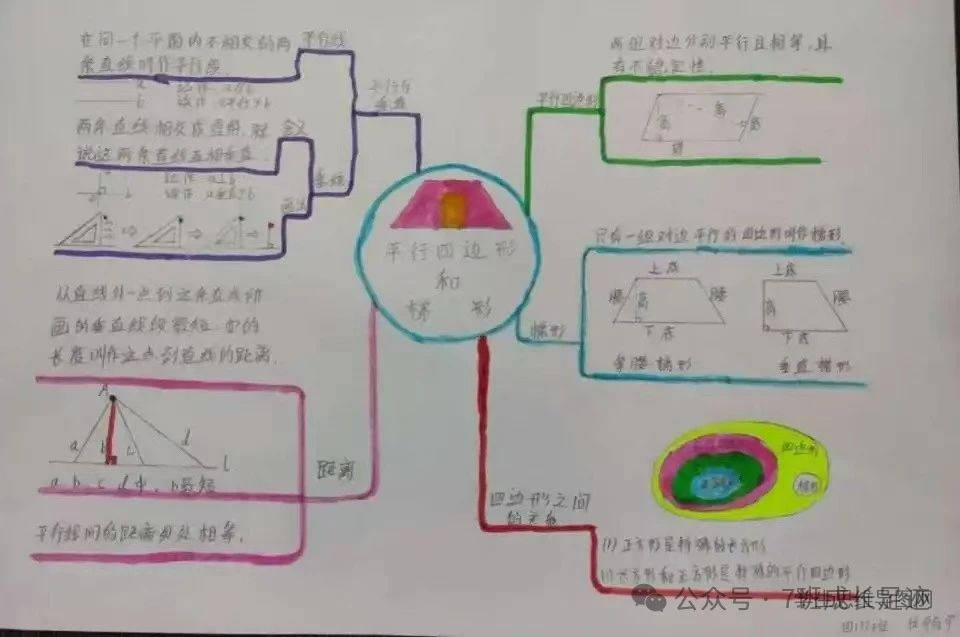 在同一个平面内不相交的两
条直线叫作平行线.
平行线
a
b
记作: a∥b
读作: a平行于b
平行与
垂直
两条直线相交成直角,就
说这两条直线互相垂直.
含义
a
b
记作: a⊥b
读作: a垂直于b
垂线
画法
从直线外一点到这条直线所
画的垂直线段最短,它的
长度叫作这点到直线的距离.
A
a
b
c
d
l
a、b、c、d中,b最短
距离
平行线间的距离处处相等.
平行四边形
和
梯 形
两组对边分别平行且相等,具
有不稳定性.
平行四边形
高
高
高
底
只有一组对边平行的四边形叫作梯形.
上底
腰
高
腰
下底
上底
高
腰
下底
梯形
等腰梯形
垂直梯形
四边形
梯形
四边形之间
的关系
(1)正方形是特殊的长方形
长方形和正方形是特殊的平行四边形
公众号 · 7班成长足迹